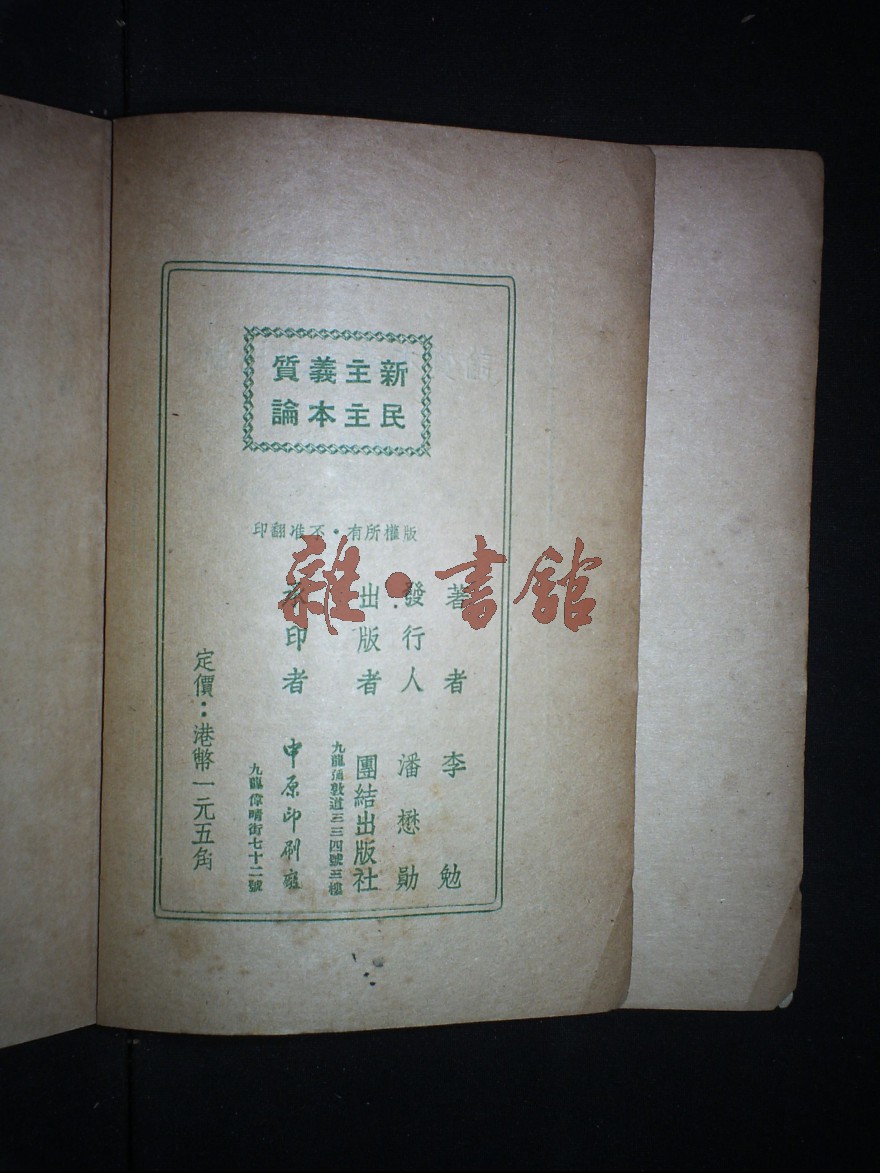 新民主主義本質論
版權所有・不准翻印
著者 李勉
發行人 潘懋勛
出版者 團結出版社
九龍彌敦道三三四號三樓
承印者 中原印刷廠
九龍偉晴街七十二號
定價：港幣一元五角
雜・書館